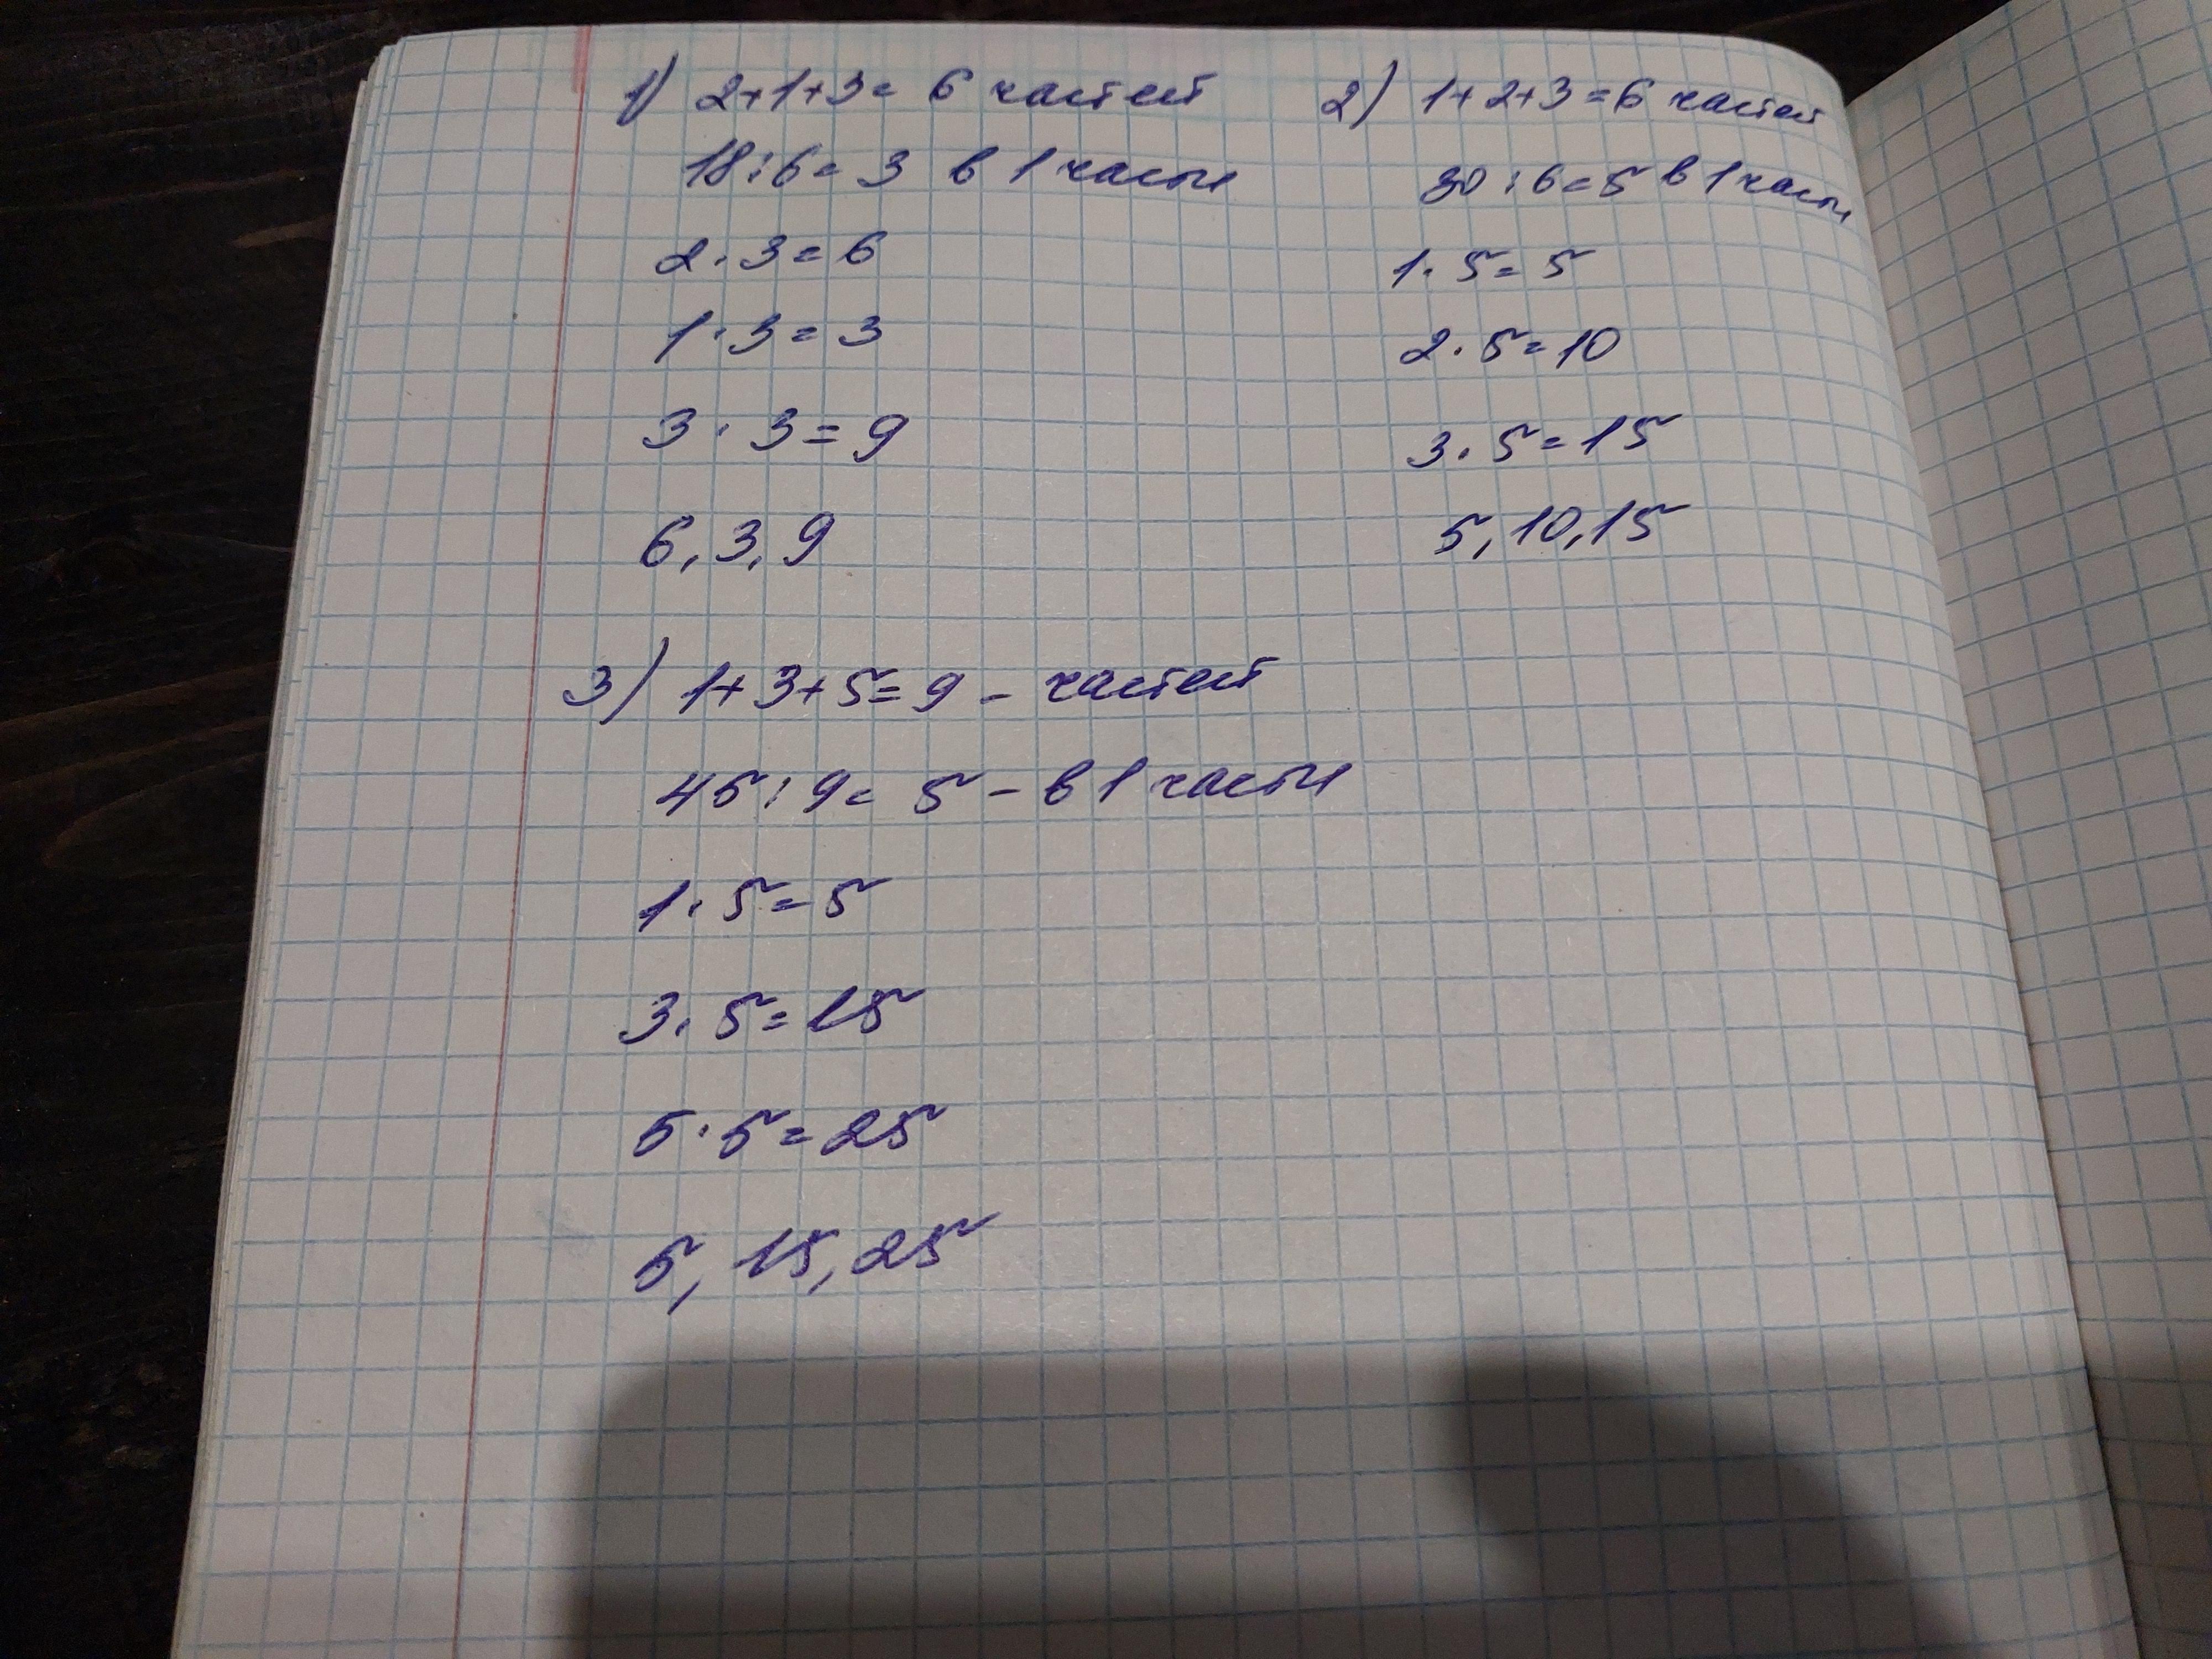 1) 2+1+3= 6 частей
18:6= 3 в 1 части
2·3=6
1·3=3
3·3=9
6, 3, 9
2) 1+2+3=6 частей
30:6=5 в 1 части
1·5=5
2·5=10
3·5=15
5, 10, 15
3) 1+3+5=9 - частей
45:9= 5 - в 1 части
1·5=5
3·5=15
5·5=25
5, 15, 25